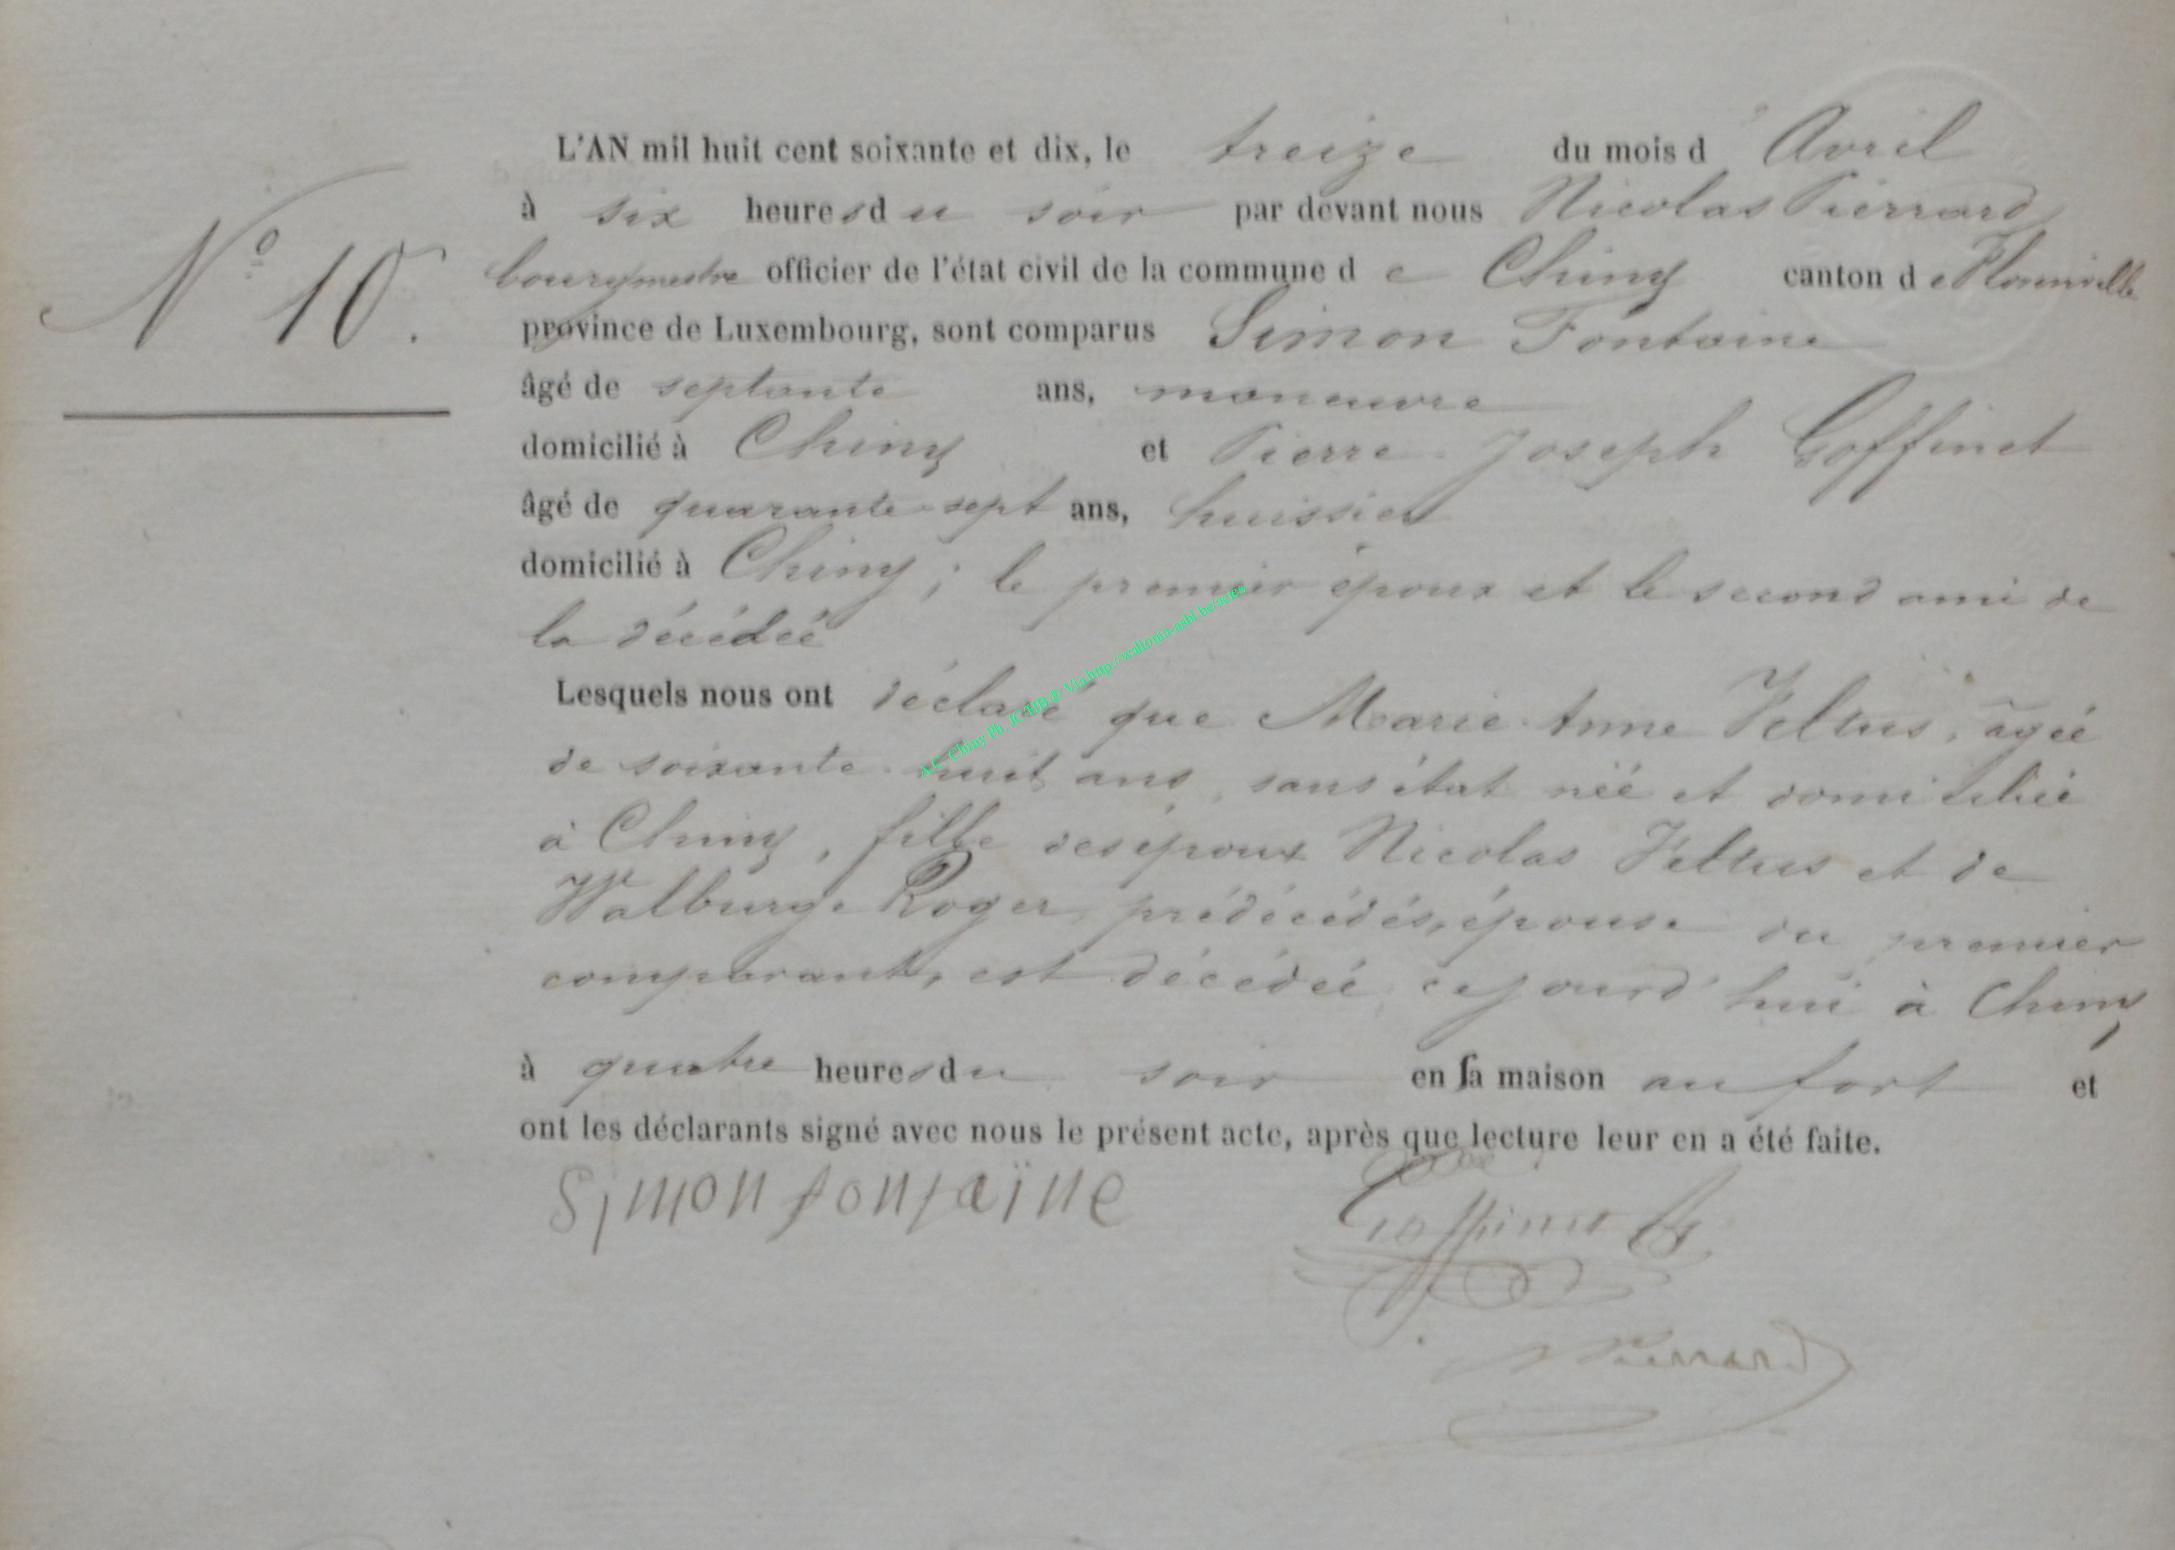 N° 10.
L'AN mil huit cent soixante et dix, le treize du mois d'Avril
à six heures du soir par devant nous Nicolas Pierrard
bourgmestre officier de l'état civil de la commune de Chiny canton de Florenville
province de Luxembourg, sont comparus Simon Fontaine
âgé de septante ans, manœuvre
domicilié à Chiny et Pierre-Joseph Goffinet
âgé de quarante-sept ans, huissier
domicilié à Chiny ; le premier époux et le second ami de
la décédée
Lesquels nous ont déclaré que Marie-Anne Feltus, âgée
de soixante-huit ans, sans état née et domiciliée
à Chiny, fille des époux Nicolas Feltus et de
Walburge Roger, prédécédés, épouse du premier
comparant, est décédée cejourd'hui à Chiny
à quatre heures du soir en sa maison au fort et
ont les déclarants signé avec nous le présent acte, après que lecture leur en a été faite.
Simon fontaïne
Goffinet
N Pierrard
A.C. Chiny Ph. JC-MB © Via http://wallonia-asbl.be/actes